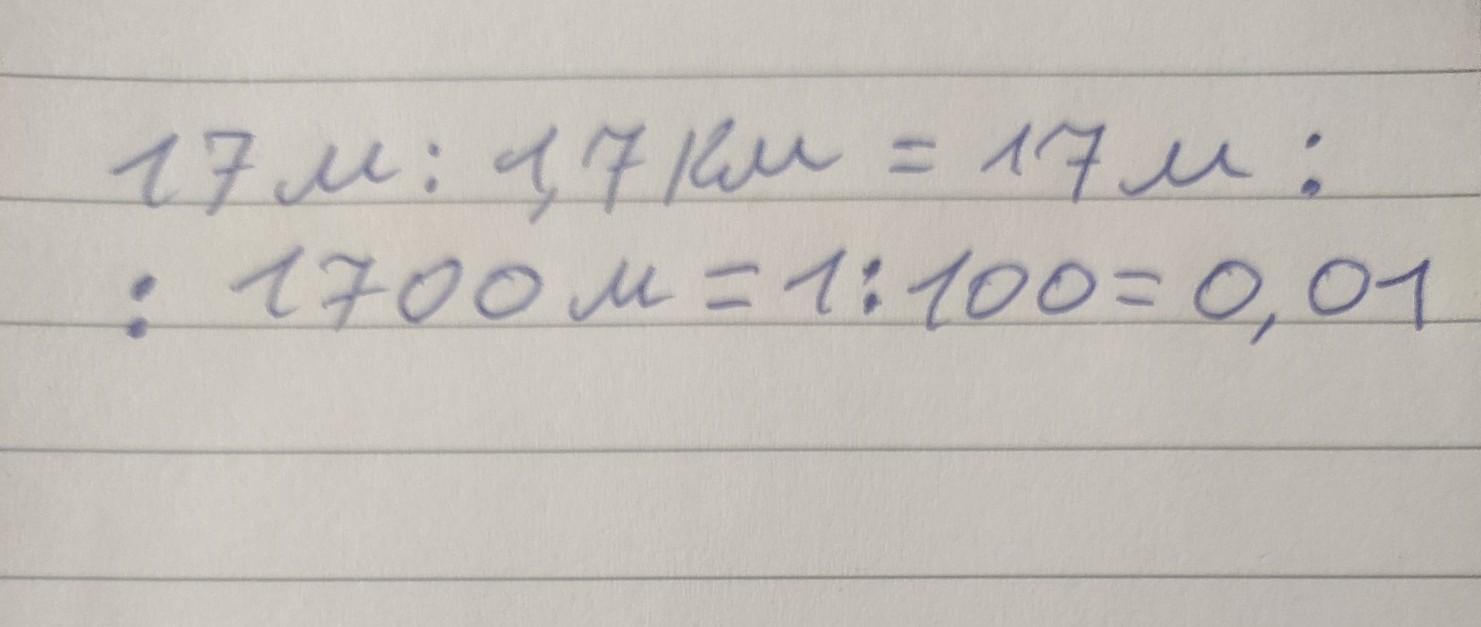 17 м : 1,7 км = 17 м :
: 1700 м = 1 : 100 = 0,01